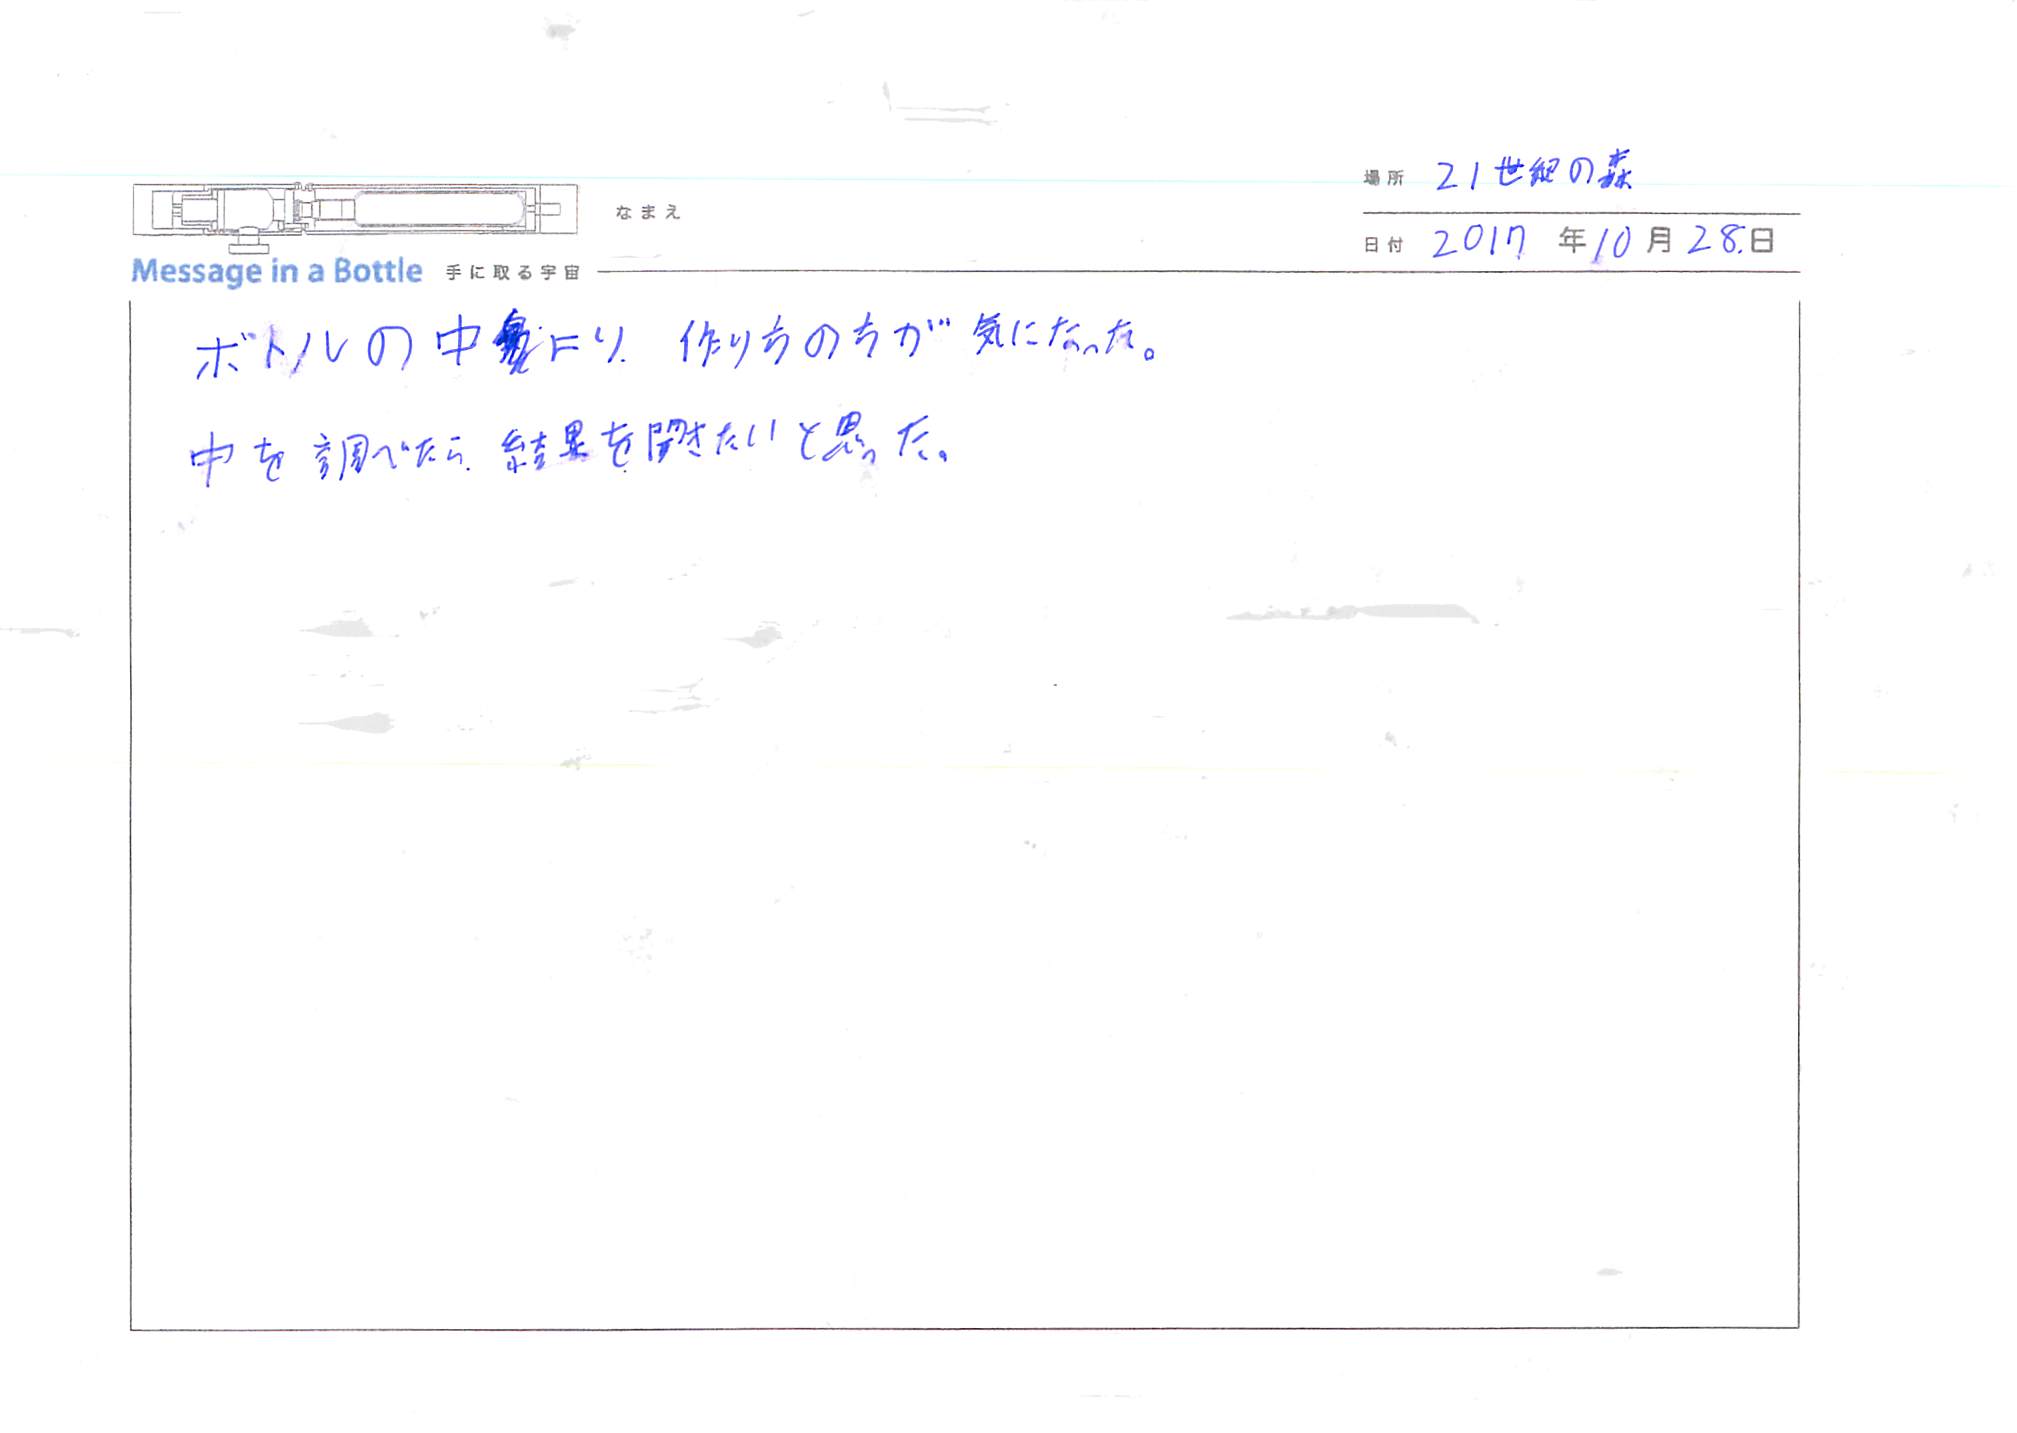 場所 21世紀の森
なまえ
日付 2017年10月28日
Message in a Bottle 手に取る宇宙
ボトルの中より、作り方の方が気になった。
中を調べたら、結果を聞きたいと思った。